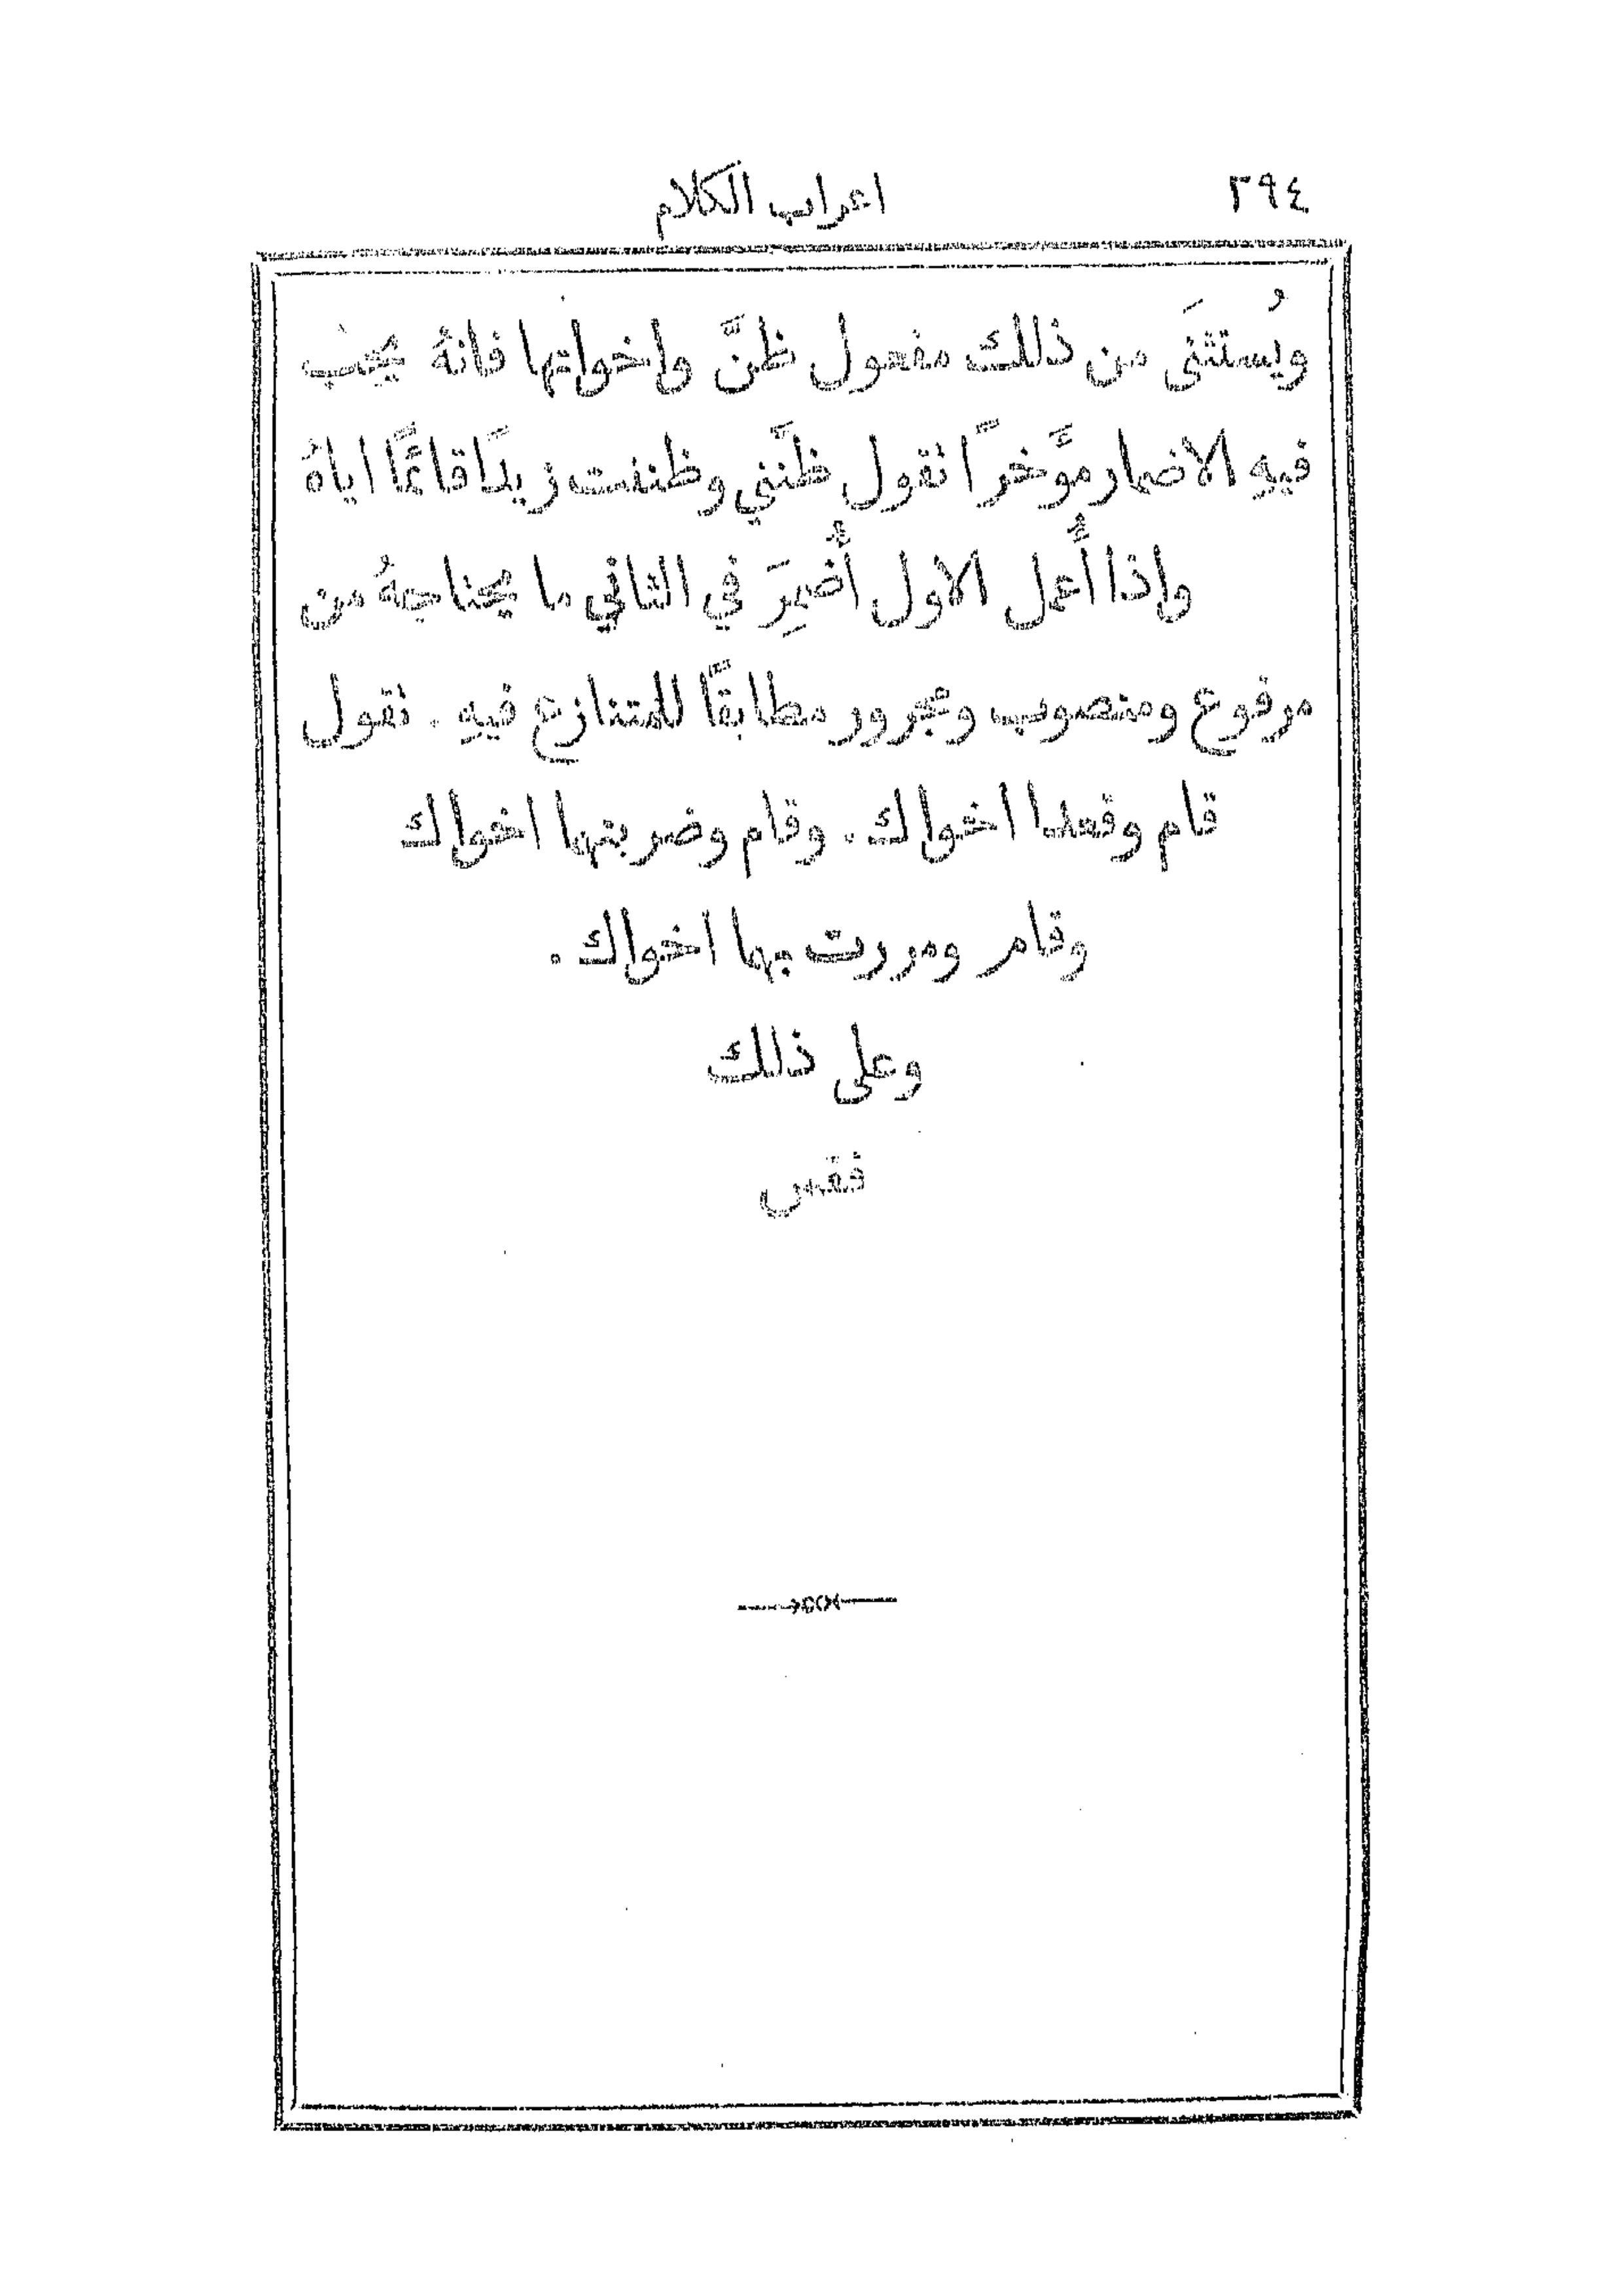 ٢٩٤ اعراب الكلام
ويُستثنَى من ذلك مفعول ظنَّ واخواتها فانهُ يجب
فيهِ الاضمار مؤَخرًا نقول ظنَّني وظننت زيدًا قائمًا اياهُ
واذا أُعمل الاول أُضمِرَ في الثاني ما يحتاجهُ من
مرفوع ومنصوب ومجرور مطابقًا للمتنازع فيهِ . نقول
قام وقعدا اخواك . وقام وضربتهما اخواك
وقام ومررت بهما اخواك .
وعلى ذلك
فقس